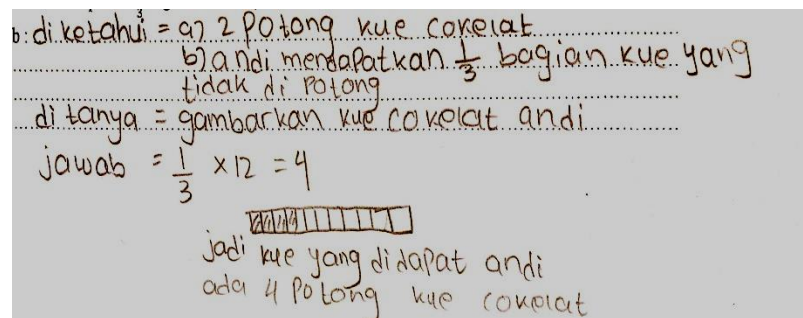 b: diketahui = a) 2 potong kue cokelat
b) andi mendapatkan 1/3 bagian kue yang
tidak di potong
di tanya = gambarkan kue cokelat andi
jawab = 1/3 × 12 = 4
jadi kue yang didapat andi
ada 4 potong kue cokelat